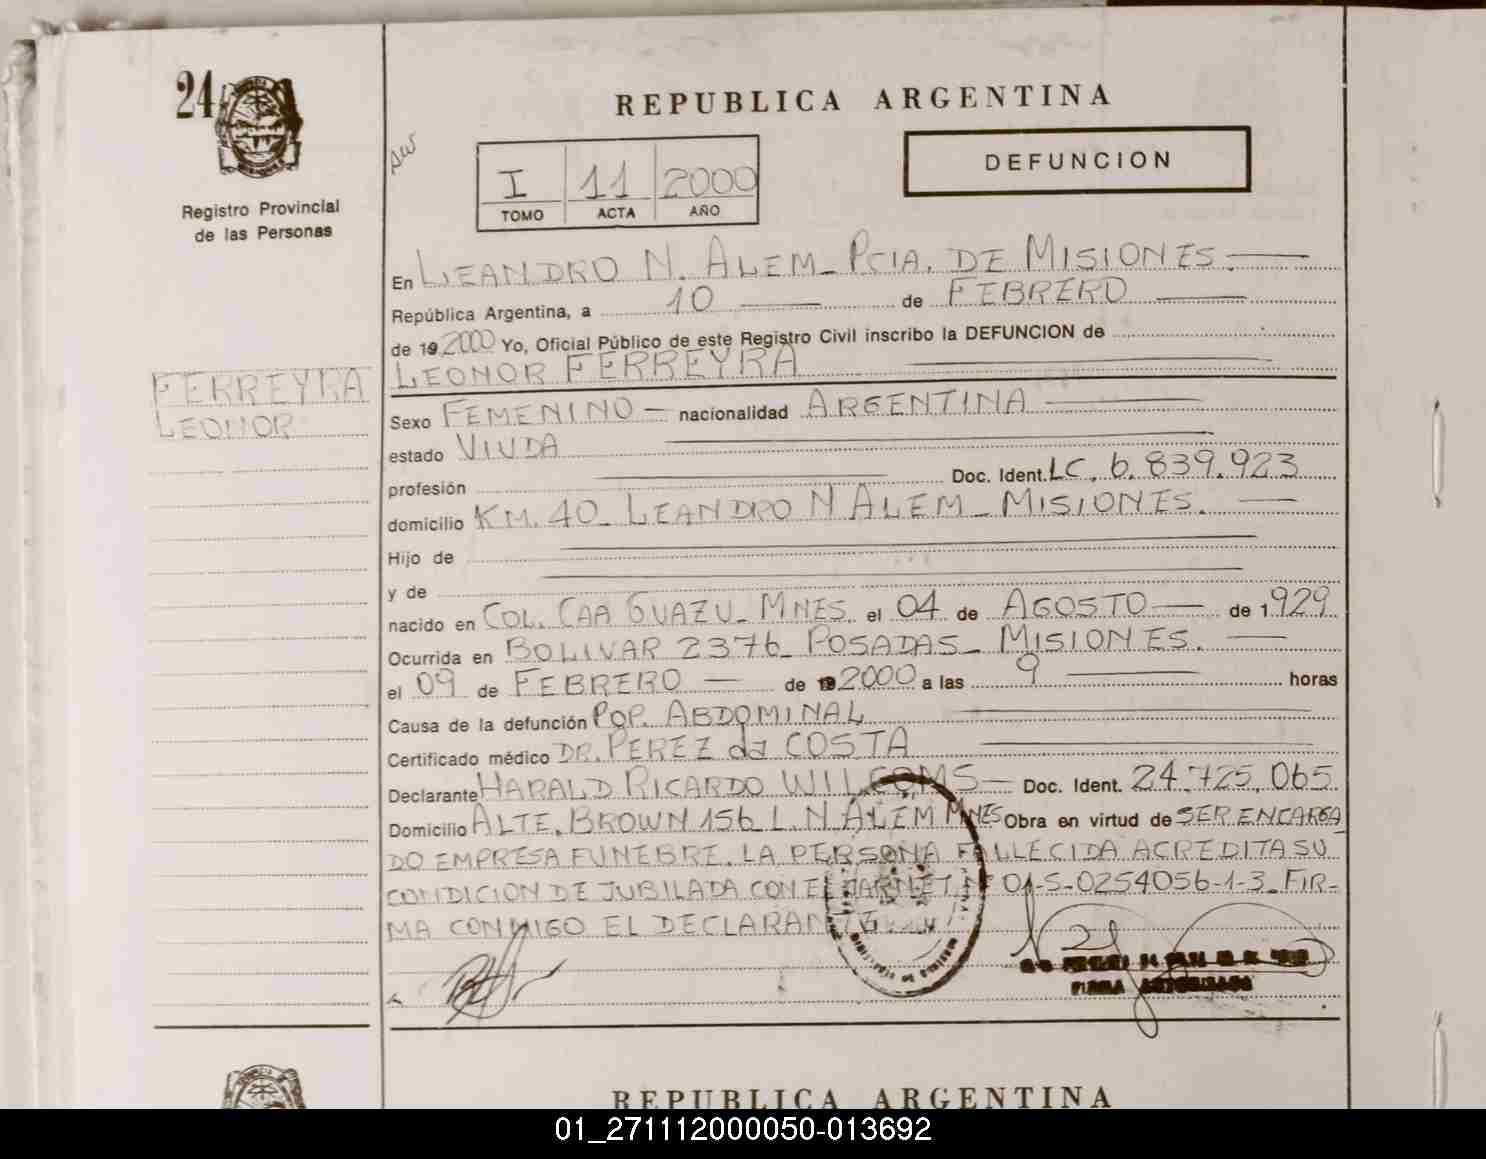 24
Registro Provincial
de las Personas
REPUBLICA ARGENTINA
DEFUNCION
I 11 2000
TOMO ACTA AÑO
En LEANDRO N. ALEM_ PCIA. DE MISIONES.
República Argentina, a 10 de FEBRERO
de 19 2000 Yo, Oficial Público de este Registro Civil inscribo la DEFUNCION de
LEONOR FERREYRA
FERREYRA
LEONOR
Sexo FEMENINO — nacionalidad ARGENTINA
estado VIUDA
profesión Doc. Ident. LC. 6.839.923
domicilio KM. 40_ LEANDRO N ALEM_ MISIONES.
Hijo de
y de
nacido en COL. CAA GUAZU_ MNES. el 04 de AGOSTO — de 1.929
Ocurrida en BOLIVAR 2376_ POSADAS_ MISIONES.
el 09 de FEBRERO — de 19 2000 a las 9 horas
Causa de la defunción POP. ABDOMINAL
Certificado médico DR. PEREZ da COSTA
Declarante HARALD RICARDO WILCOMS — Doc. Ident. 24.725.065
Domicilio ALTE. BROWN 156 L. N ALEM MNES Obra en virtud de SER ENCARGA
DO EMPRESA FUNEBRE. LA PERSONA FALLECIDA ACREDITA SU
CONDICION DE JUBILADA CON EL CARNET 01-5-0254056-1-3_ FIR-
MA CONMIGO EL DECLARANTE
FIRMA AUTORIZADO
REPUBLICA ARGENTINA
01_271112000050-013692